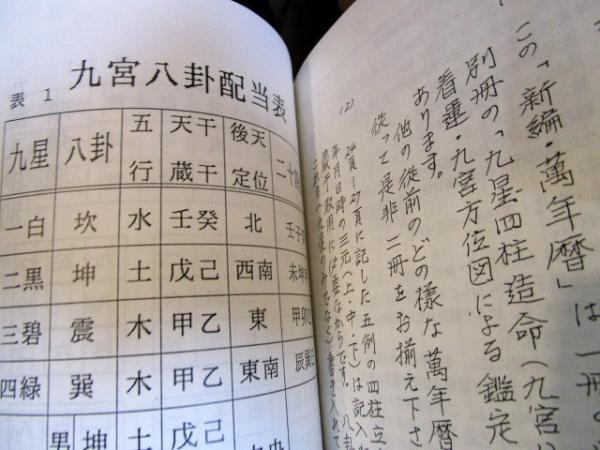 表 1 九宮八卦配当表
九星 八卦 五行 天干蔵干 後天定位 二十四
一白 坎 水 壬癸 北 壬子
二黒 坤 土 戊己 西南 未坤
三碧 震 木 甲乙 東 甲卯乙
四緑 巽 木 甲乙 東南 辰巽
男 坤 土 戊己
この「新編・萬年暦」は一冊の
別冊の「九星四柱造命(九宮
着運・九宮方位図による鑑定
あります。
他の従前のどの様な萬年暦
従って是非二冊をお揃え下さ
(2)
27頁に記した五例の四柱立
年月日時の三元(上・中・下)は記入
蔵干取用には要なからです。八卦
書き入れて